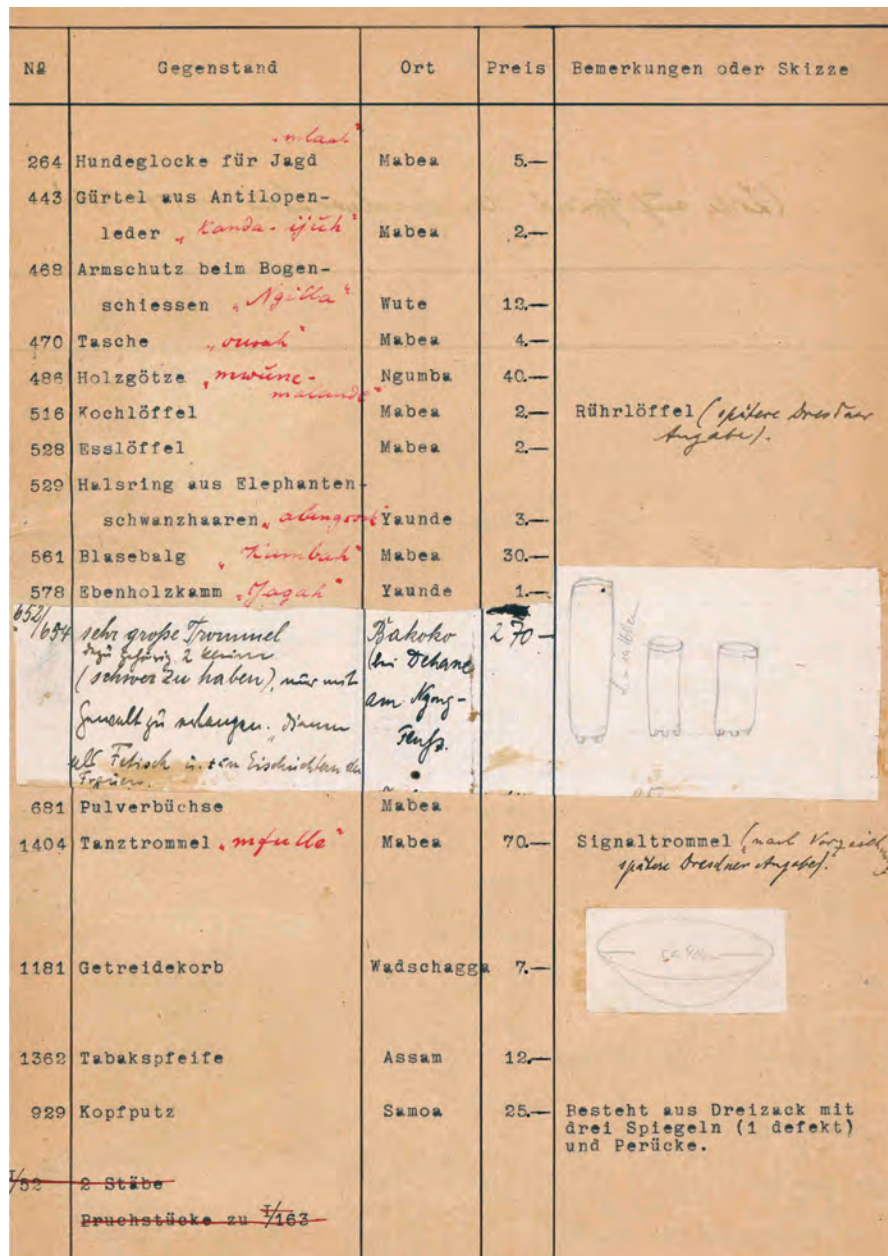 № Gegenstand Ort Preis Bemerkungen oder Skizze
264 Hundeglocke für Jagd Mabea 5.—
443 Gürtel aus Antilopen-
leder „Kanda-ijuh“ Mabea 2.—
468 Armschutz beim Bogen-
schiessen „Ngilla“ Wute 12.—
470 Tasche Mabea 4.—
486 Holzgötze „mwune- Ngumba 40.—
malande“
516 Kochlöffel Mabea 2.— Rührlöffel (spätere Dresdner
Angabe).
528 Esslöffel Mabea 2.—
529 Halsring aus Elephanten-
schwanzhaaren Yaunde 3.—
561 Blasebalg „Kumbah“ Mabea 30.—
578 Ebenholzkamm „Jagah“ Yaunde 1.—
652/654 sehr große Trommel Bakoko 270—
dazu gehörig 2 kleine
(schwer zu haben), nur mit bei Dehane
Gewalt zu erlangen. dienen am Njong-
als Fetisch u. zum der Fluß.
Frauen.
681 Pulverbüchse Mabea
1404 Tanztrommel „mfulle“ Mabea 70.— Signaltrommel (nach
spätere Dresdner Angabe).
1181 Getreidekorb Wadschagga 7.—
1362 Tabakspfeife Assam 12.—
929 Kopfputz Samoa 25.— Besteht aus Dreizack mit
drei Spiegeln (1 defekt)
und Perücke.
I/52 2 Stäbe
Bruchstücke zu I/163